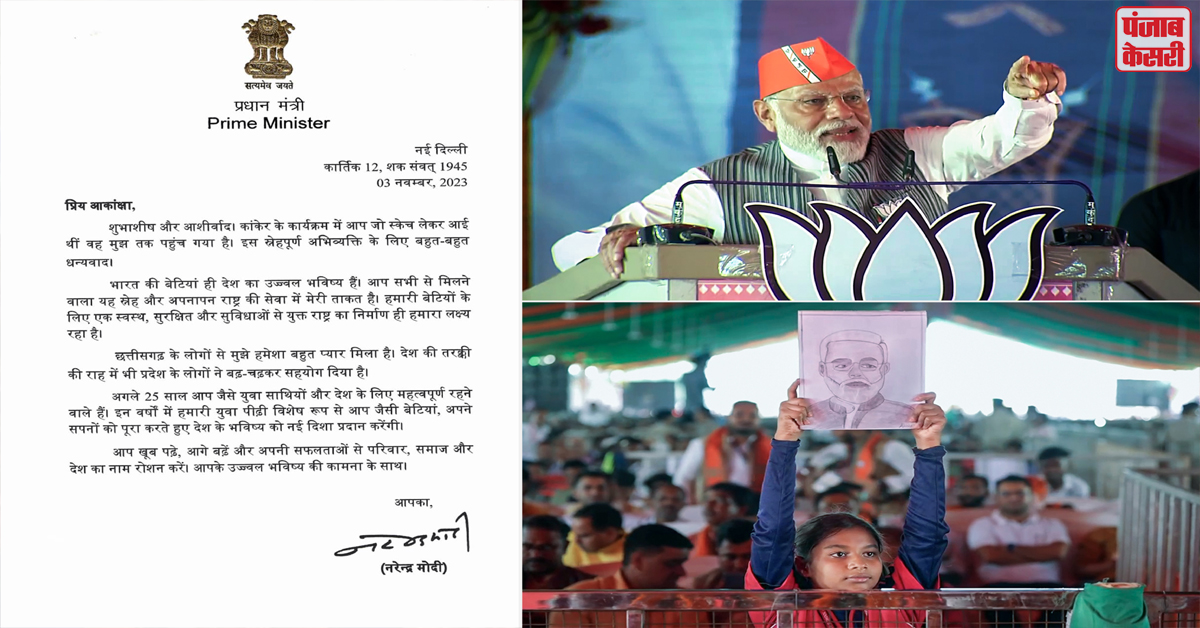 सत्यमेव जयते
प्रधान मंत्री
Prime Minister
नई दिल्ली
कार्तिक 12, शक संवत् 1945
03 नवम्बर, 2023
प्रिय आकांक्षा,
शुभाशीष और आशीर्वाद। कांकेर के कार्यक्रम में आप जो स्केच लेकर आई
थीं वह मुझ तक पहुंच गया है। इस स्नेहपूर्ण अभिव्यक्ति के लिए बहुत-बहुत
धन्यवाद।
भारत की बेटियां ही देश का उज्ज्वल भविष्य हैं। आप सभी से मिलने
वाला यह स्नेह और अपनापन राष्ट्र की सेवा में मेरी ताकत है। हमारी बेटियों के
लिए एक स्वस्थ, सुरक्षित और सुविधाओं से युक्त राष्ट्र का निर्माण ही हमारा लक्ष्य
रहा है।
छत्तीसगढ़ के लोगों से मुझे हमेशा बहुत प्यार मिला है। देश की तरक्की
की राह में भी प्रदेश के लोगों ने बढ़-चढ़कर सहयोग दिया है।
अगले 25 साल आप जैसे युवा साथियों और देश के लिए महत्वपूर्ण रहने
वाले हैं। इन वर्षों में हमारी युवा पीढ़ी विशेष रूप से आप जैसी बेटियां, अपने
सपनों को पूरा करते हुए देश के भविष्य को नई दिशा प्रदान करेंगी।
आप खूब पढ़ें, आगे बढ़ें और अपनी सफलताओं से परिवार, समाज और
देश का नाम रोशन करें। आपके उज्ज्वल भविष्य की कामना के साथ।
आपका,
नरेन्द्र मोदी
(नरेन्द्र मोदी)
पंजाब
केसरी